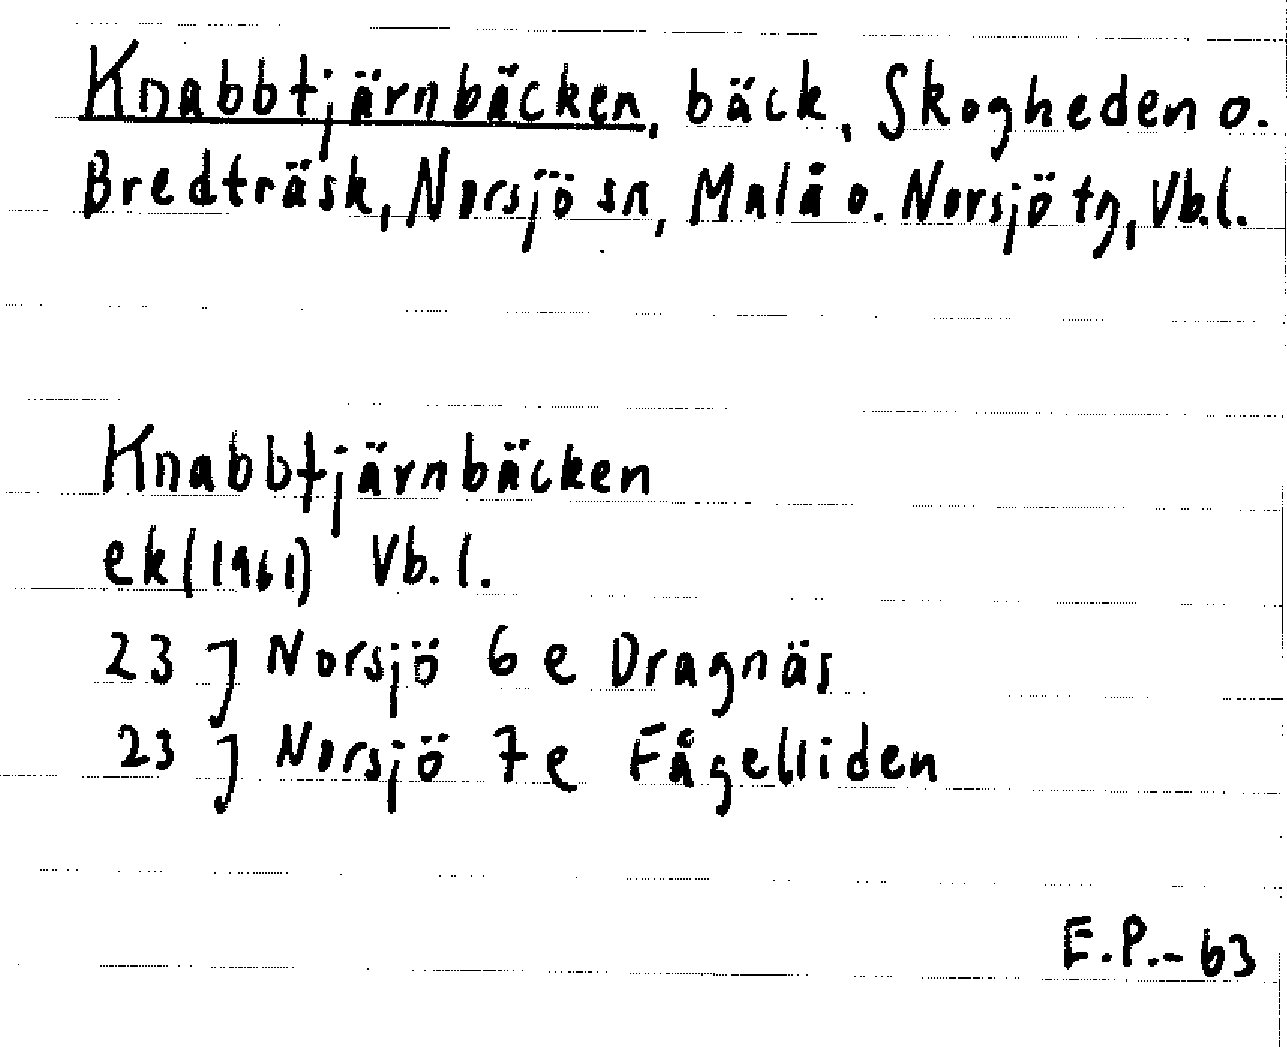 Knabbtjärnbäcken, bäck, Skogheden o.
Bredträsk, Norsjö sn, Malå o. Norsjö tg, Vb.l.
Knabbtjärnbäcken
ek (1961) Vb. l.
23 J Norsjö 6 e Dragnäs
23 J Norsjö 7 e Fågelliden
E.P.-63